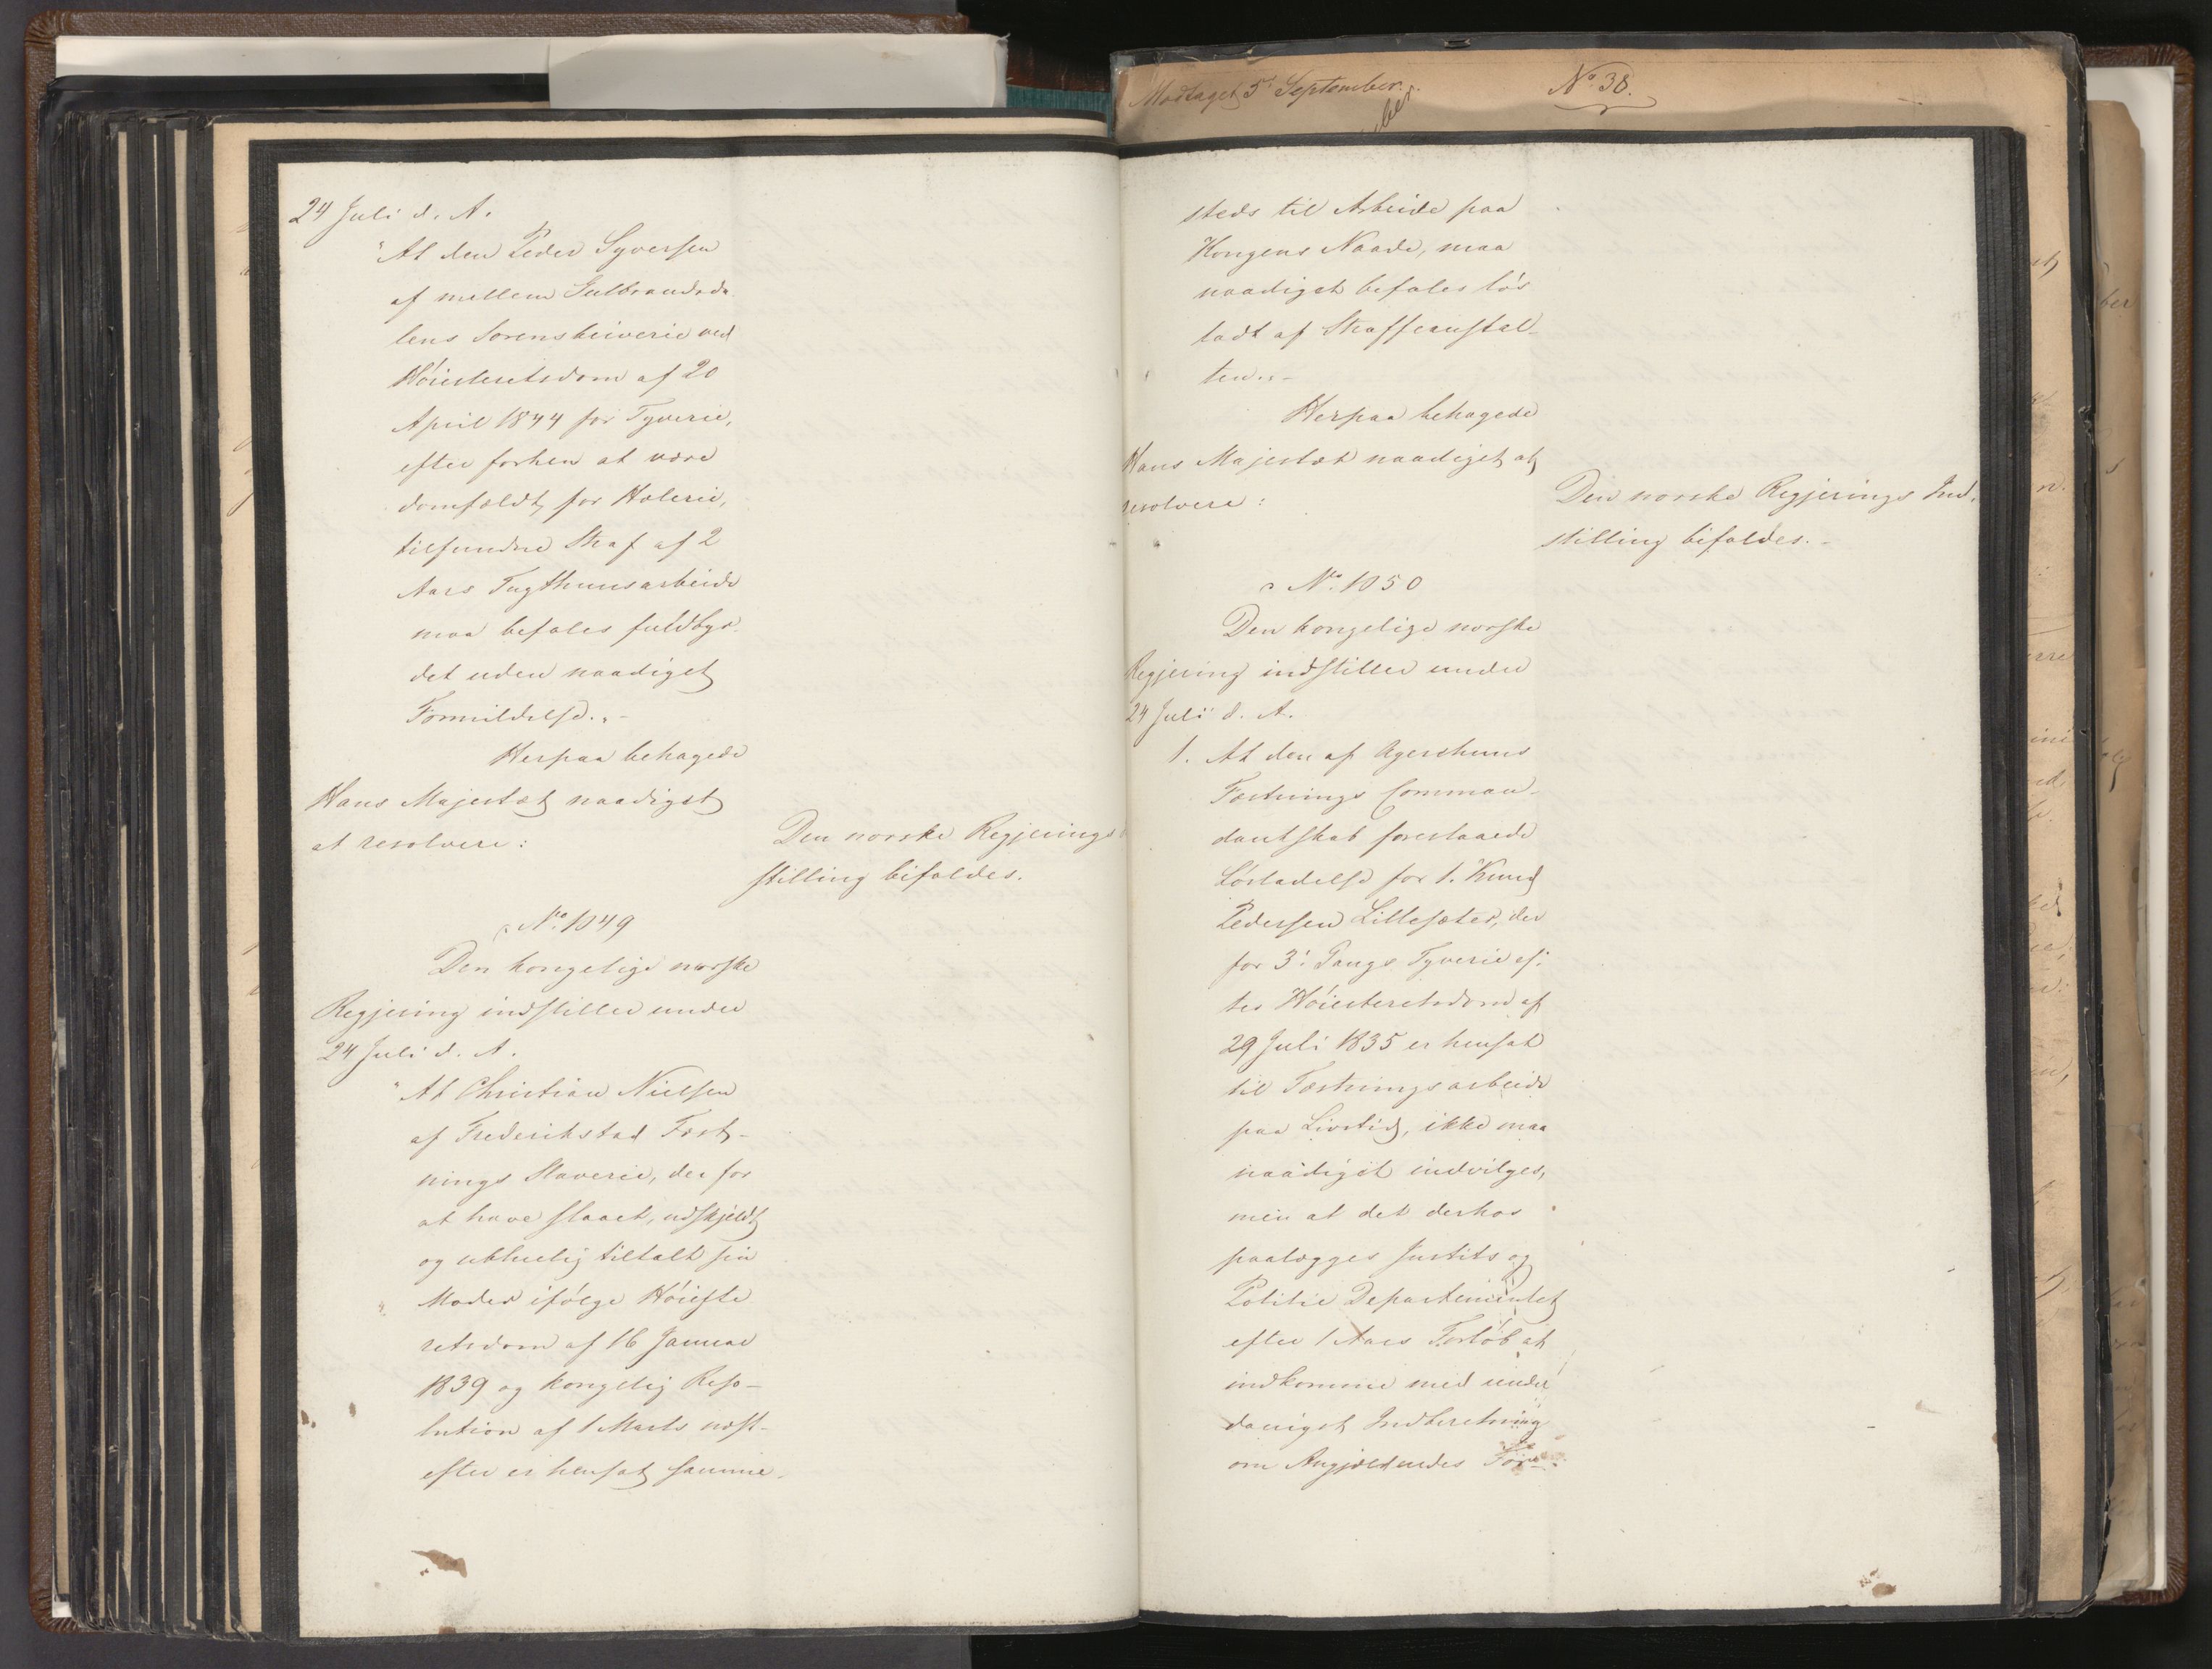 24 Juli d. A.
"At den Peder Syversen
af mellem Gulbrandsda
lens Sorenskriverie ved
Höiesteretsdom af 20
April 1844 for Tyverie,
efter forhen at være
domfældt for Hælerie,
tilfundne Straf af 2
Aars Tugthuusarbeide
maa befales fuldbyr
det uden naadigst
Formildelse."-
Herpaa behagede
Hans Majestæt naadigst
at resolvere:
Den norske Regjerings
stilling bifaldes.
No. 1049
Den kongelige norske
Regjering indstiller under
24 Juli d. A.
"At Christian Nielsen
af Frederikstad Fæst-
nings Slaverie, der for
at have slaaet, udskjeldt
og ublueligt tiltalt sin
Moder ifölge Höieste
retsdom af 16 Januar
1839 og kongelig Reso-
lution af 1 Marts næst-
efter er hensat samme-
Modtaget 5te September.
No. 38.
ber
steds til Arbeide paa
Kongens Naade, maa
naadigst befales lös
ladt af Straffeanstal-
ten."-
Herpaa behagede
Hans Majestæt naadigst at
resolvere:
Den norske Regjerings Ind-
stilling bifaldes.-
No. 1050
Den kongelige norske
Regjering indstiller under
24 Juli d. A.
1. At den af Agershuus
Fæstnings Comman-
dantskab foreslaaede
Lösladelse for 1. Knud
Pedersen Lillesæter, der
for 3die Gangs Tyverie ef-
ter Höiesteretsdom af
29 Juli 1835 er hensat
til Fæstningsarbeide
paa Livstid, ikke maa
naadigst indvilges,
men at det derhos
paalægges Justits og
Politie Departementet
efter 1 Aars Forlöb at
indkomme med under
danigst Indberetning
om Angjeldendes For-